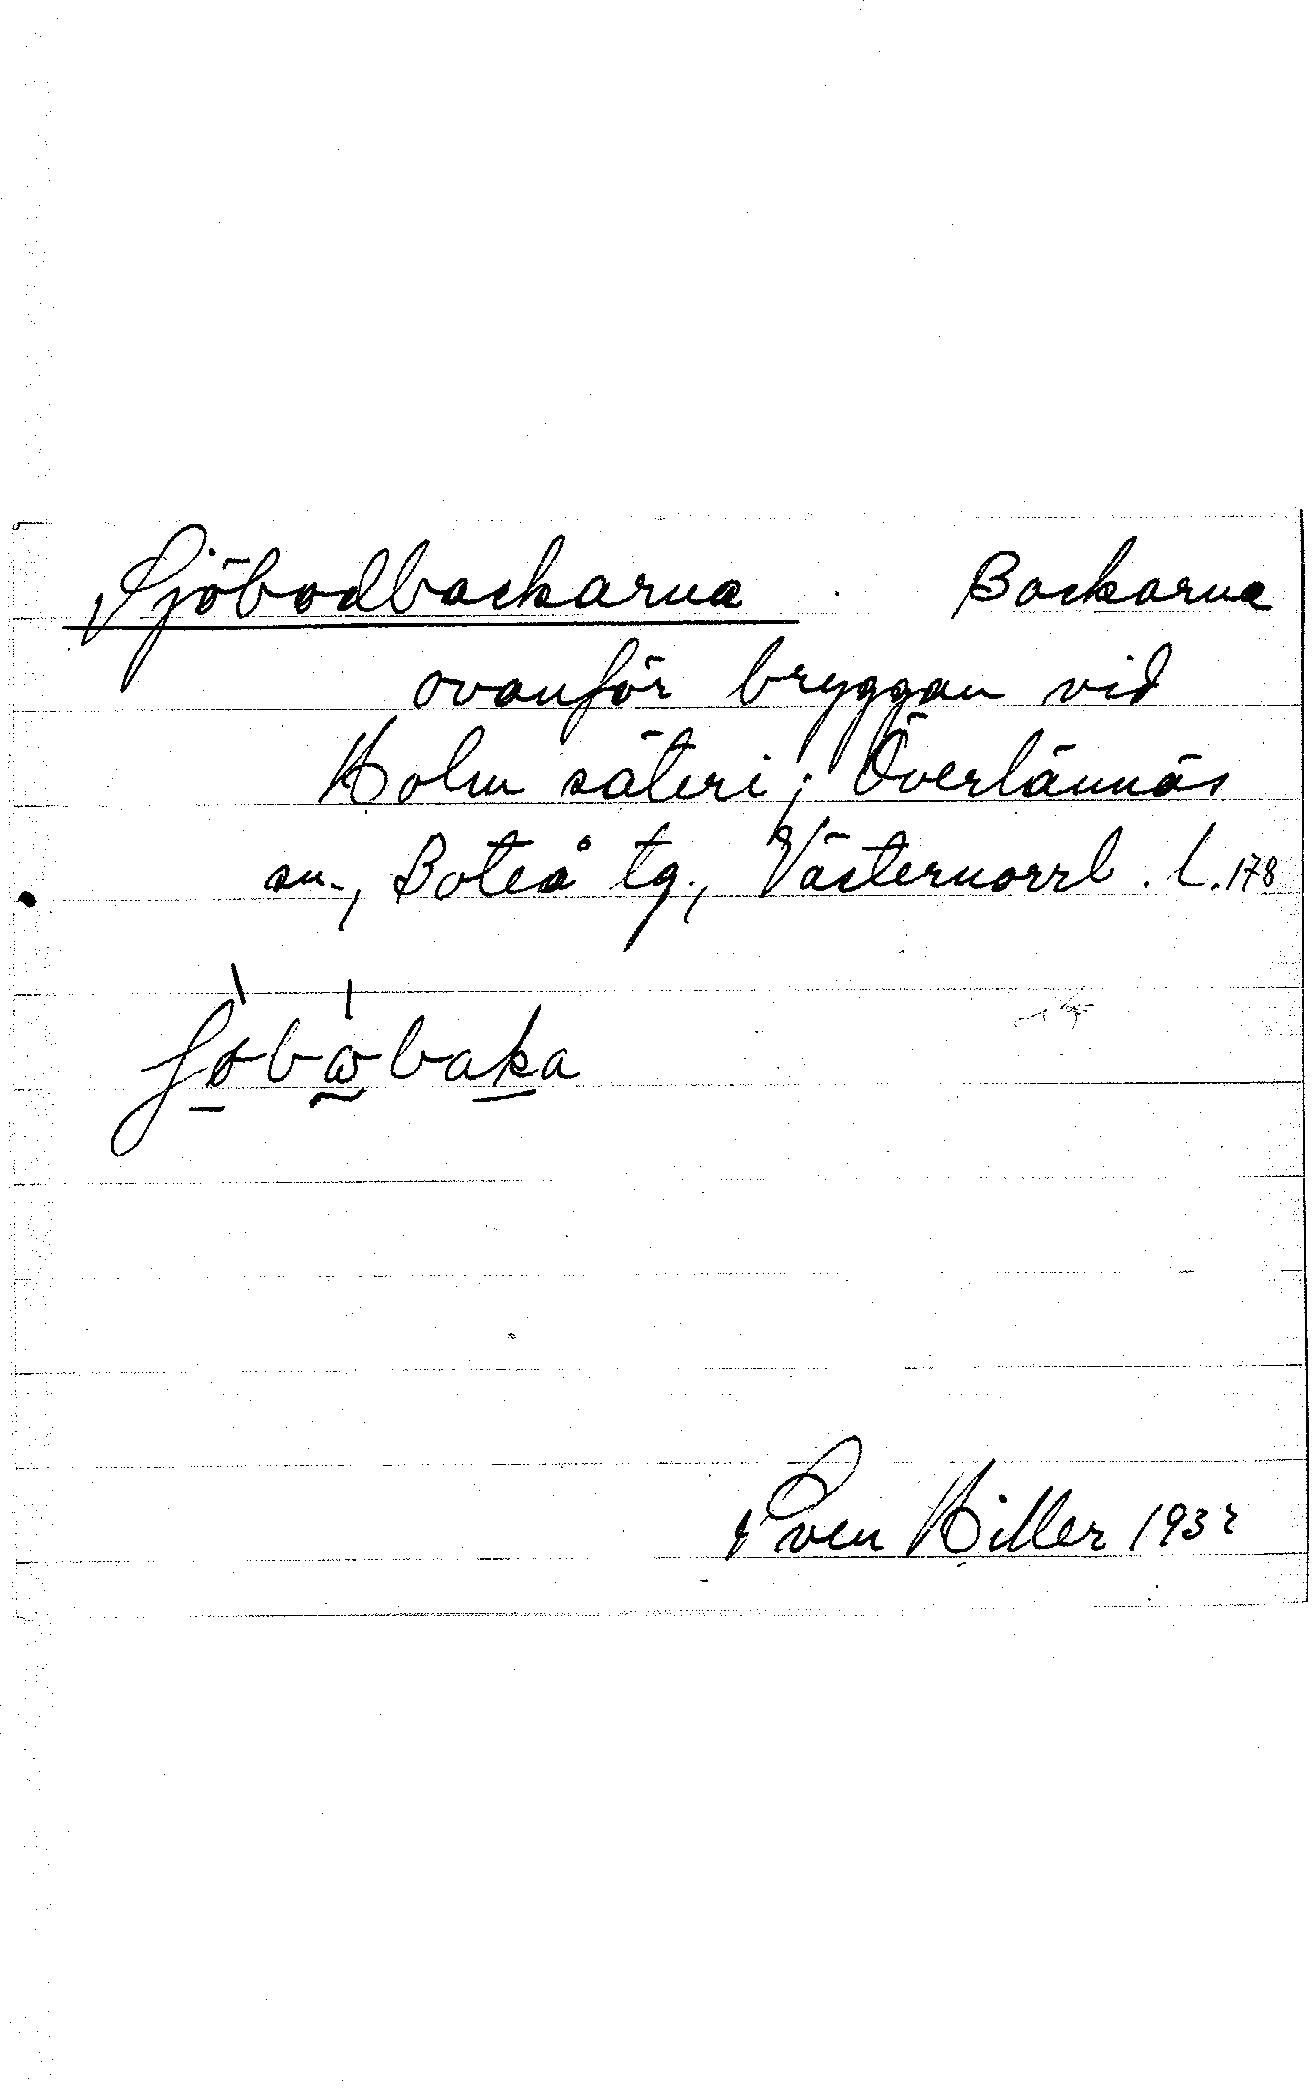 Sjöbodbackarna Backarna
ovanför bryggan vid
Holm säteri; Överlännäs
sn., Boteå tg., Västernorrl. l. 178
Sven Hiller 1932